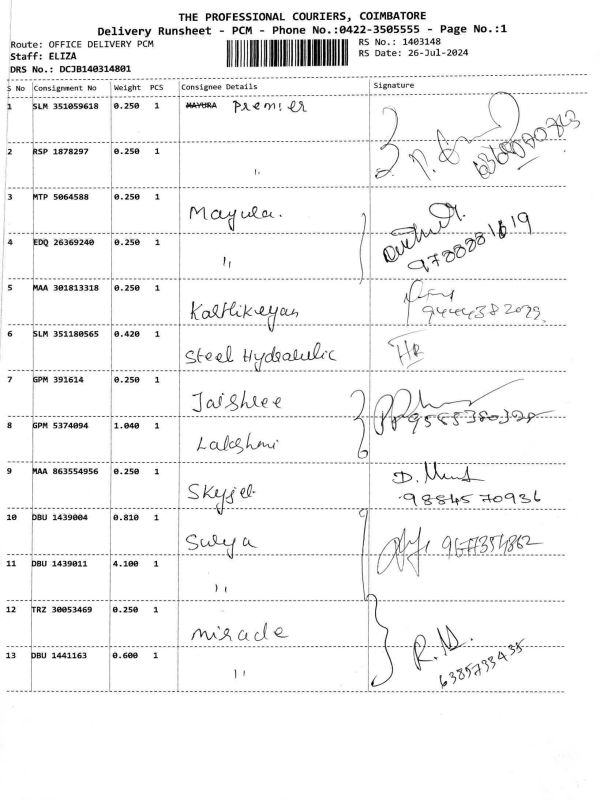 THE PROFESSIONAL COURIERS, COIMBATORE
Delivery Runsheet - PCM - Phone No.:0422-3505555 - Page No.:1
Route: OFFICE DELIVERY PCM RS No.: 1403148
Staff: ELIZA RS Date: 26-Jul-2024
DRS No.: DCJB140314801
S No Consignment No Weight PCS Consignee Details Signature
1 SLM 351059618 0.250 1 MAYURA Premier
2 RSP 1878297 0.250 1 ''
3 MTP 5064588 0.250 1 Mayura.
4 EDQ 26369240 0.250 1 ''
9788881619
5 MAA 301813318 0.250 1 Karthikeyan
6 SLM 351180565 0.420 1 Steel Hydraulic HR
7 GPM 391614 0.250 1 Jaishree
8 GPM 5374094 1.040 1 Lakshmi
9 MAA 863554956 0.250 1 Skyjet D.
9884570936
10 DBU 1439004 0.810 1 Surya
11 DBU 1439011 4.100 1 ''
12 TRZ 30053469 0.250 1 miracle
13 DBU 1441163 0.600 1 '' 6385733435